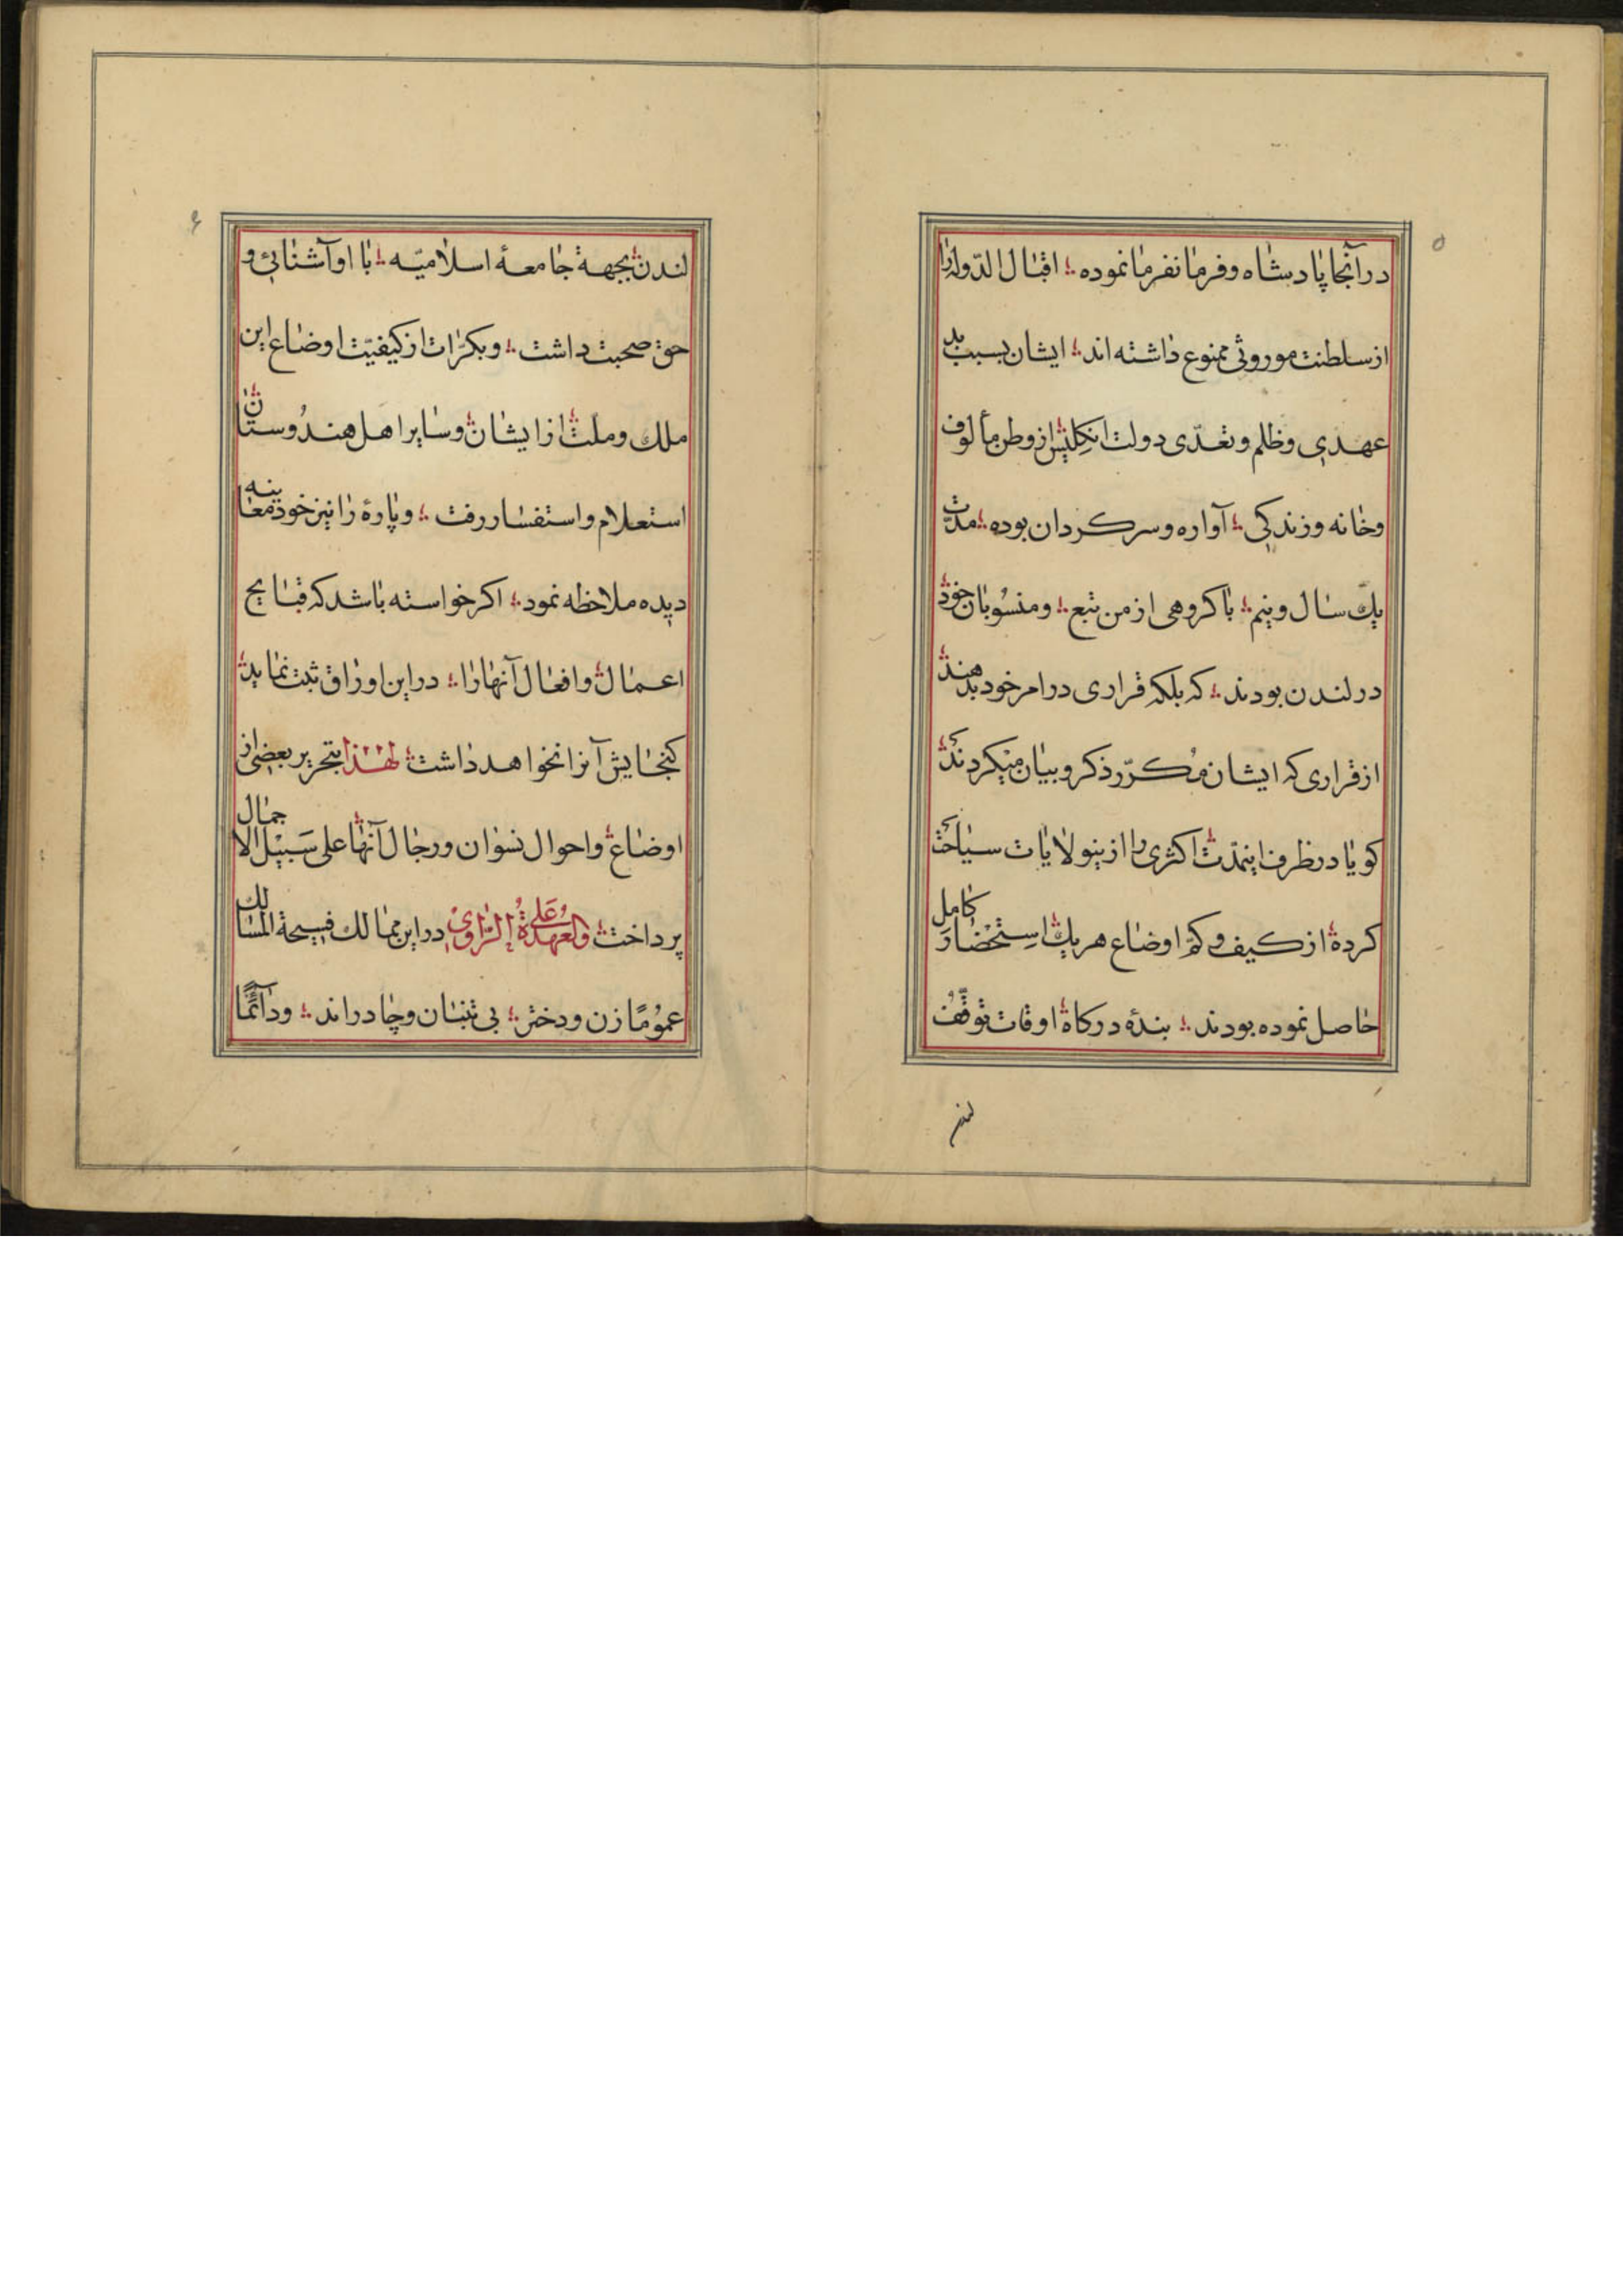 ۵
درآنجا پادشاه و فرمانفرما نموده ؛ اقبال الدّوله را
از سلطنت موروثی ممنوع داشته اند ؛ ایشان بسبب بد
عهدی و ظلم و تعدّی دولت انکلیس از وطن مألوف
و خانه و زندکی ؛ آواره و سرکردان بوده ؛ مدّت
یک سال و نیم ؛ با کروهی از من تبع ؛ و منسوبان خود
در لندن بودند ؛ که بلکه قراری در امر خود بدهند
از قراری که ایشان مکرّر ذکر و بیان میکردند که
کویا در ظرف اینمدّت اکثری را از ینولایات سیاحت
کرده از کیف و کم اوضاع هریک استحضار کامل
حاصل نموده بودند ؛ بندۀ درکاه اوقات توقّف
لندن
۶
لندن بجهة جامعۀ اسلامیّه ؛ با او آشنائی و
حق صحبت داشت ؛ و بکرّات از کیفیّت اوضاع این
ملك و ملّت از ایشان و سایر اهل هندوستان
استعلام و استفسار رفت ؛ و پارۀ را نیز خود معاینه
دیده ملاحظه نمود ؛ اکر خواسته باشد که قبایح
اعمال و افعال آنها را ؛ در این اوراق ثبت نماید
کنجایش آنرا نخواهد داشت لهذا بتحریر بعضی از
اوضاع و احوال نسوان و رجال آنها علی سَبیْل الاجمال
پرداخت والعهدةُ عَلی الرّاوی در این ممالك فسیحة المسالك
عمومًا زن و دختر ؛ بی تنبان و چادراند ؛ و دآئمًا